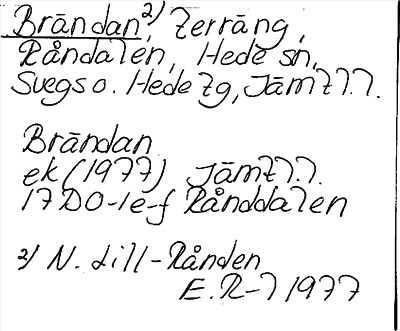 Brändan²⁾, Terräng,
Råndalen, Hede sn,
Svegs o. Hede tg, Jämtl.l.
Brändan
ek (1977) Jämtl.l.
17 D 0-1 e-f Rånddalen
²⁾ N. Lill-Rånden
E.R-l 1977